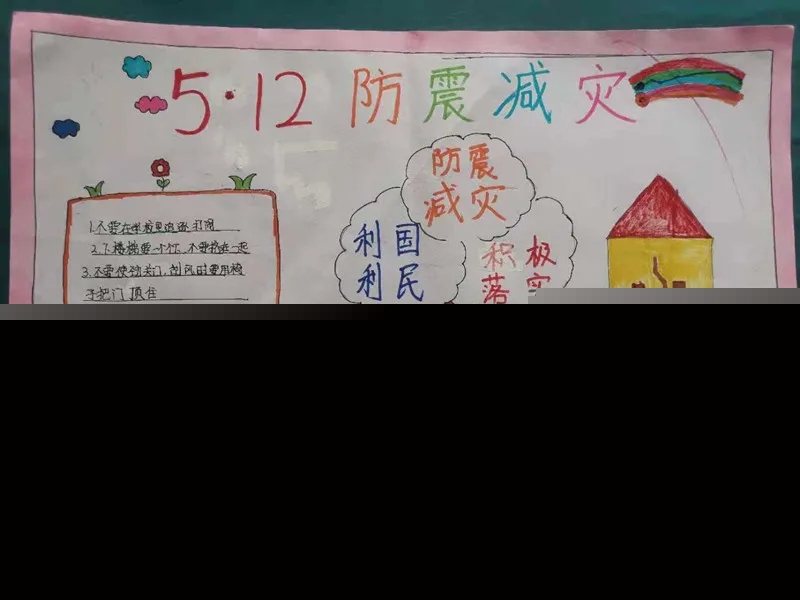 5·12防震减灾
防震
减灾
利国
利民
积极
落实
1.不要在学校里追逐打闹
2.下楼梯要一个个,不要挤在一起
3.不要使劲关门,刮风时要用椅
子把门顶住